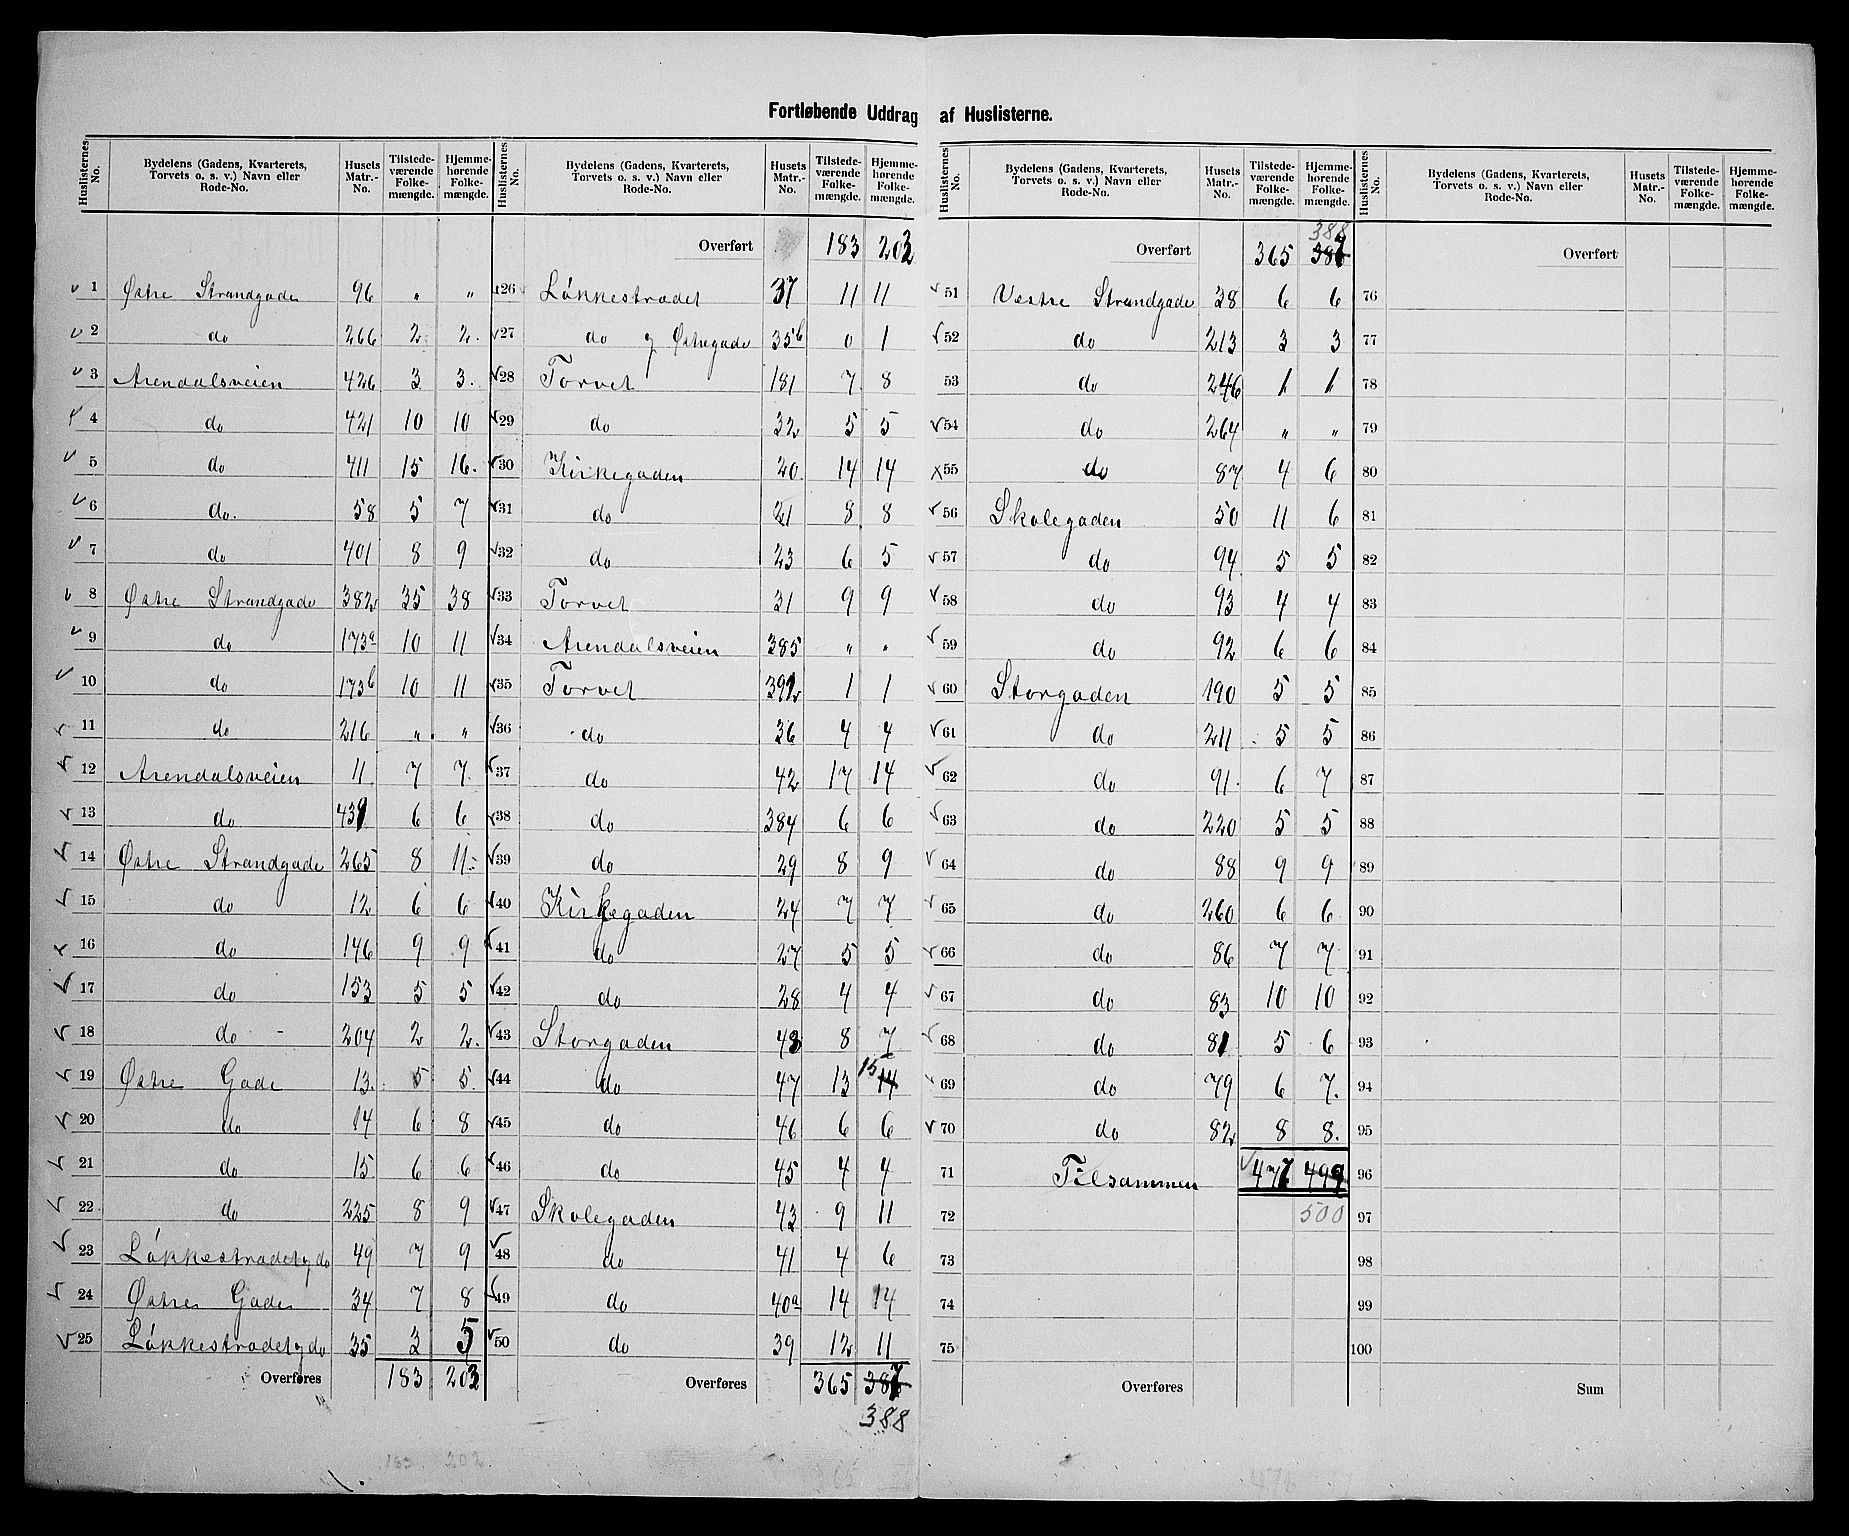 Fortløbende Uddrag af Huslisterne.
Huslisternes No. | Bydelens (Gadens, Kvarterets, Torvets o. s. v.) Navn eller Rode-No. | Husets Matr.-No. | Tilstedeværende Folkemængde. | Hjemmehørende Folkemængde.
1 Østre Strandgade 96 " "
2 do 266 2 2.
3 Arendalsveien 426 3 3.
4 do 421 10 10
5 do 411 15 16.
6 do. 58 5 7
7 do 401 8 9
8 Østre Strandgade 382 35 38
9 do 173a 10 11
10 do 173b 10 11
11 do 216 " "
12 Arendalsveien 11. 7 7.
13 do 431 6 6
14 Østre Strandgade 265 8 11
15 do 12 6 6
16 do 146 9 9
17 do 153 5 5
18 do - 204 2 2.
19 Østre Gade 13. 5 5.
20 do 14 6 8
21 do 15 6 6
22 do 225 8 9
23 Løkkestrædet og do 49 7 9
24 Østre Gade 34 7 8
25 Løkkestrædet og do 35 3 5
Overføres 183 203
183 202
Huslisternes No. | Bydelens (Gadens, Kvarterets, Torvets o. s. v.) Navn eller Rode-No. | Husets Matr.-No. | Tilstedeværende Folkemængde. | Hjemmehørende Folkemængde.
Overført 183 203
26 Løkkestrædet 37 11 11
27 do og Østregade 35b 0 1
28 Torvet 181 7 8
29 do 32 5 5
30 Kirkegaden 20 14 14
31 do 21 8 8
32 do 23 6 5
33 Torvet 31 9 9
34 Arendalsveien 385 " "
35 Torvet 392 1 1
36 do 36 4 4
37 do 42 17 14
38 do 384 6 6
39 do 29 8 9
40 Kirkegaden 24 7 7
41 do 27 5 5
42 do 28 4 4
43 Storgaden 48 8 7
44 do 47 13 14 15
45 do 46 6 6
46 do 45 4 4
47 Skolegaden 43 9 11
48 do 41 4 6
49 do 40a 14 14
50 do 39 12 11
Overføres 365 387
388
365
Huslisternes No. | Bydelens (Gadens, Kvarterets, Torvets o. s. v.) Navn eller Rode-No. | Husets Matr.-No. | Tilstedeværende Folkemængde. | Hjemmehørende Folkemængde.
388
Overført 365 387
51 Vestre Strandgade 38 6 6
52 do 213 3 3
53 do 246 1 1
54 do 264 " "
55 do 87 4 6
56 Skolegaden 50 11 6
57 do 94 5 5
58 do 93 4 4
59 do 92 6 6
60 Storgaden 190 5 5
61 do 211 5 5
62 do 91. 6 7
63 do 220 5 5
64 do 88 9 9
65 do 260 6 6
66 do 86 7 7
67 do 83 10 10
68 do 81 5 6
69 do 79 6 7.
70 do 82 8 8.
71 Tilsammen 477 499
72 500
73
74
75
Overføres
Huslisternes No. | Bydelens (Gadens, Kvarterets, Torvets o. s. v.) Navn eller Rode-No. | Husets Matr.-No. | Tilstedeværende Folkemængde. | Hjemmehørende Folkemængde.
Overført
76
77
78
79
80
81
82
83
84
85
86
87
88
89
90
91
92
93
94
95
96
97
98
99
100
Sum